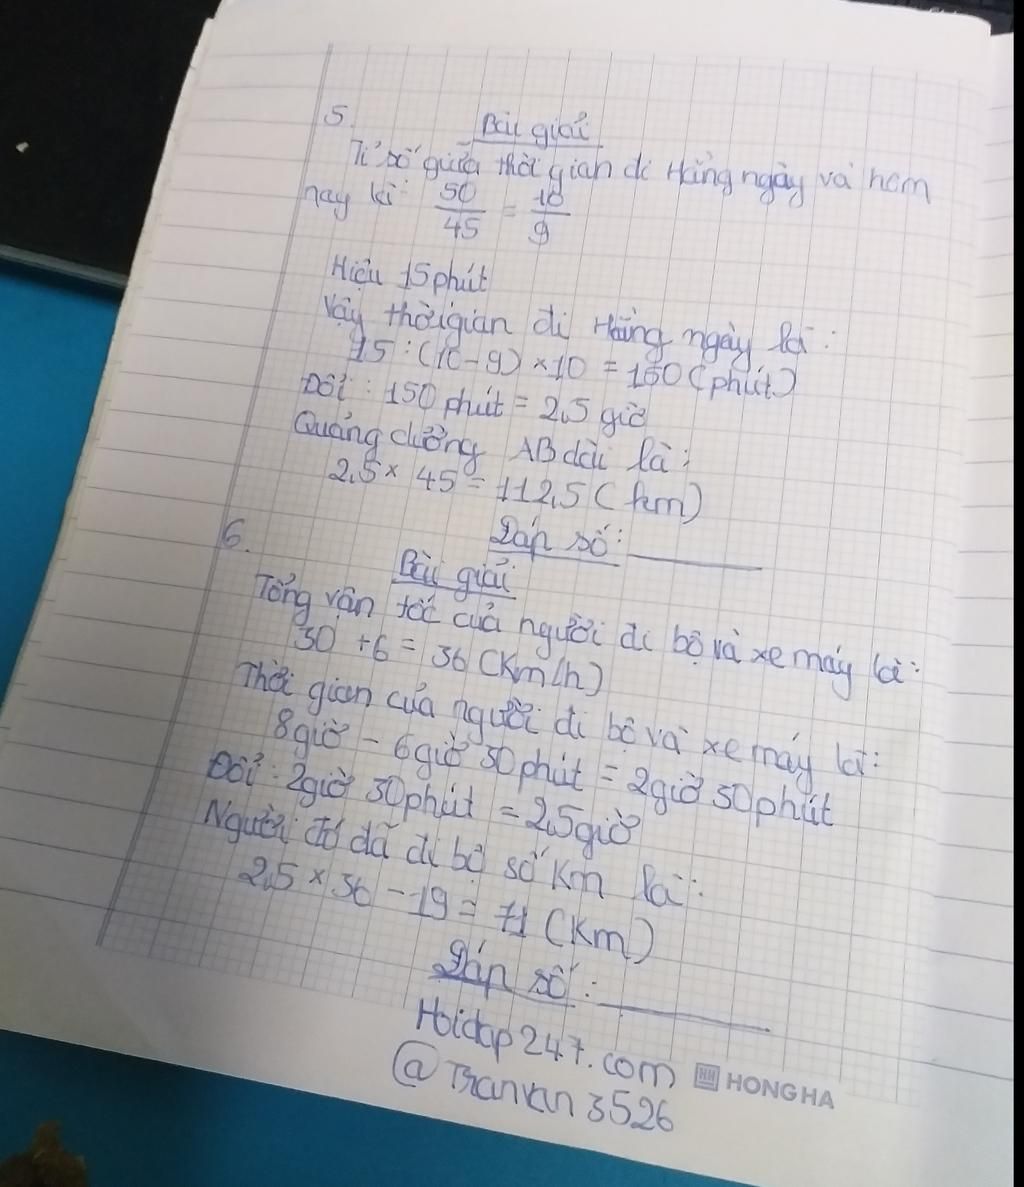 5.
Bài giải
Tỉ số giữa thời gian đi Hằng ngày và hôm
nay là: 50/45 = 10/9
Hiệu 15 phút
Vậy thời gian đi Hằng ngày là:
15 : (10 - 9) × 10 = 150 (phút)
Đổi: 150 phút = 2,5 giờ
Quảng đường AB dài là:
2,5 × 45 = 112,5 (km)
Đáp số:
6.
Bài giải
Tổng vận tốc của người đi bộ và xe máy là:
30 + 6 = 36 (Km/h)
Thời gian của người đi bộ và xe máy là:
8 giờ - 6 giờ 30 phút = 2 giờ 30 phút
Đổi: 2 giờ 30 phút = 2,5 giờ
Người đó đã đi bộ số Km là:
2,5 × 36 - 19 = 71 (Km)
Đáp số:
Hoidap247.com
HH HONG HA
@Tranvan3526